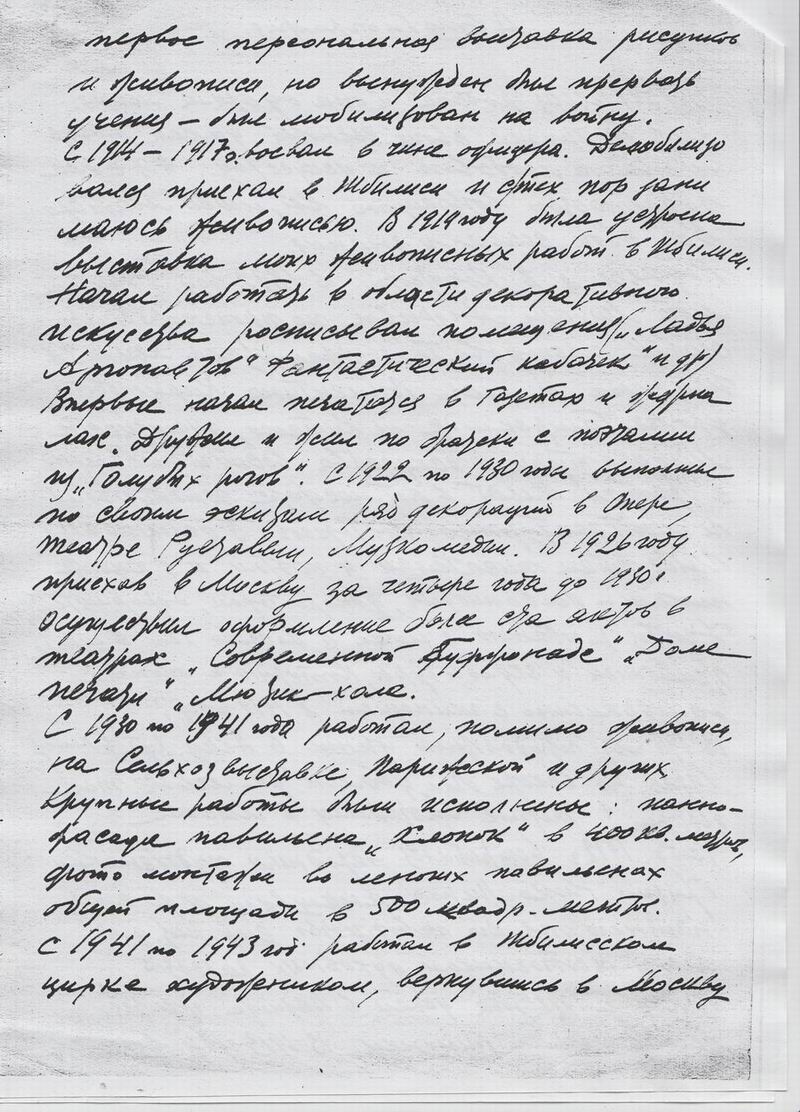 первое персональная выставка рисунков
и живописи, но вынужден был прервать
учения – был мобилизован на войну.
С 1914 – 1917г. воевал в чине офицера. Демобилизо
вался приехал в Тбилиси и с тех пор зани
маюсь живописью. В 1919 году была устроена
выставка моих живописных работ в Тбилиси.
Начал работать в области декоративного
искусства росписывал помещения („Ладья
Аргонавтов" Фантастический кабачек" и др)
Впервые начал печататся в газетах и журна
лах. Дружил и жил по братски с поэтами
из „Голубых рогов". С 1922 по 1930 годы выполнил
по своим эскизам ряд декораций в Опере,
театре Руставели, Музкомедии. В 1926 году
приехав в Москву за четыре года до 1930г
осуществил оформление более ста актов в
театрах „Современной Буффонаде" „Доме
печати" „Мюзик-холле.
С 1930 по 1941 года работал, помимо живописи,
на Сельхозвыставке, Парижской и других
Крупные работы были исполнены: панно-
фасада павильена „Хлопок" в 400 кв. метров,
фото монтажи во многих павильенах
общей площади в 500 квадр. метров.
С 1941 по 1943 год работал в Тбилисском
цирке художником, вернувшись в Москву